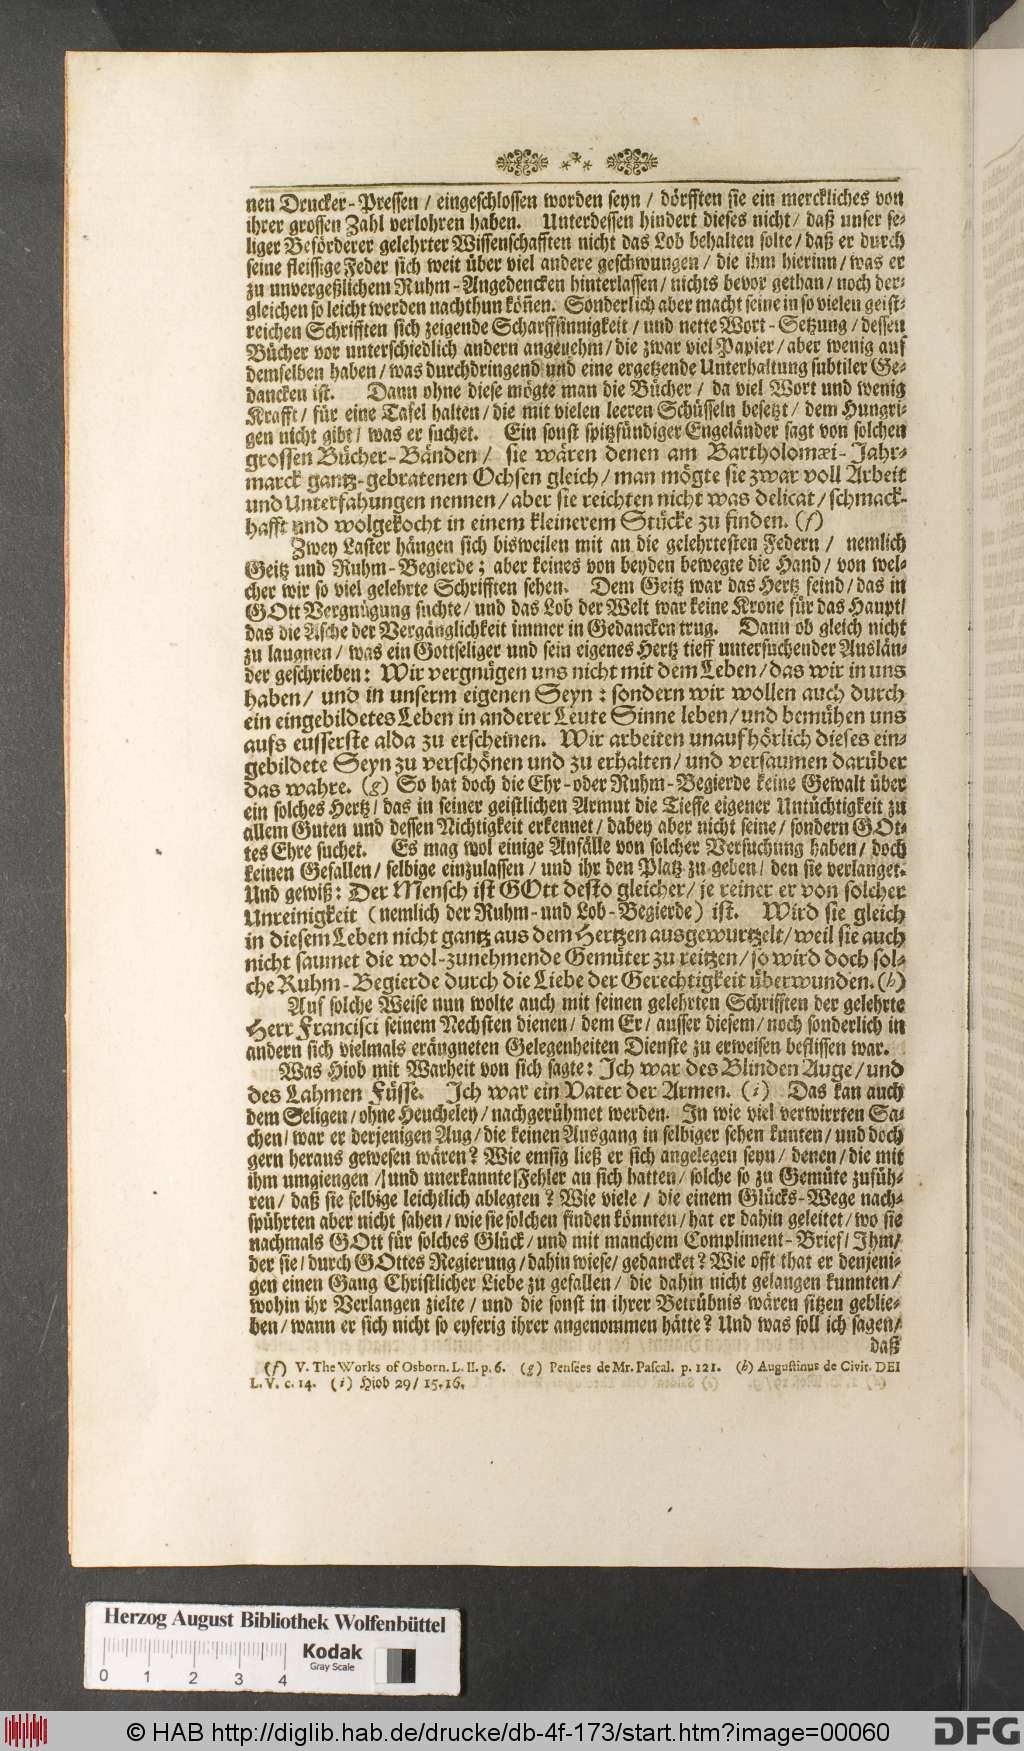 nen Drucker-Pressen / eingeschlossen worden seyn / dörfften sie ein merckliches von
ihrer grossen Zahl verlohren haben. Unterdessen hindert dieses nicht / daß unser se-
liger Beförderer gelehrter Wissenschafften nicht das Lob behalten solte / daß er durch
seine fleissige Feder sich weit über viel andere geschwungen / die ihm hierinn / was er
zu unvergeßlichem Ruhm-Angedencken hinterlassen / nichts bevor gethan / noch der-
gleichen so leicht werden nachthun köñen. Sonderlich aber macht seine in so vielen geist-
reichen Schrifften sich zeigende Scharffsinnigkeit / und nette Wort-Setzung / dessen
Bücher vor unterschiedlich andern angenehm / die zwar viel Papier / aber wenig auf
demselben haben / was durchdringend und eine ergetzende Unterhaltung subtiler Ge-
dancken ist. Dann ohne diese mögte man die Bücher / da viel Wort und wenig
Krafft / für eine Tafel halten / die mit vielen leeren Schüsseln besetzt / dem Hungri-
gen nicht gibt / was er suchet. Ein sonst spitzfündiger Engeländer sagt von solchen
grossen Bücher-Bänden / sie wären denen am Bartholomæi-Jahr-
marck gantz-gebratenen Ochsen gleich / man mögte sie zwar voll Arbeit
und Unterfahungen nennen / aber sie reichten nicht was delicat / schmack-
hafft und wolgekocht in einem kleinerem Stücke zu finden. (f)
Zwey Laster hängen sich bisweilen mit an die gelehrtesten Federn / nemlich
Geitz und Ruhm-Begierde; aber keines von beyden bewegte die Hand / von wel-
cher wir so viel gelehrte Schrifften sehen. Dem Geitz war das Hertz feind / das in
GOtt Vergnügung suchte / und das Lob der Welt war keine Krone für das Haupt /
das die Asche der Vergänglichkeit immer in Gedancken trug. Dann ob gleich nicht
zu laugnen / was ein Gottseliger und sein eigenes Hertz tieff untersuchender Auslän-
der geschrieben: Wir vergnügen uns nicht mit dem Leben / das wir in uns
haben / und in unserm eigenen Seyn: sondern wir wollen auch durch
ein eingebildetes Leben in anderer Leute Sinne leben / und bemühen uns
aufs eusserste alda zu erscheinen. Wir arbeiten unaufhörlich dieses ein-
gebildete Seyn zu verschönen und zu erhalten / und versaumen darüber
das wahre. (g) So hat doch die Ehr-oder Ruhm-Begierde keine Gewalt über
ein solches Hertz / das in seiner geistlichen Armut die Tieffe eigener Untüchtigkeit zu
allem Guten und dessen Nichtigkeit erkennet / dabey aber nicht seine / sondern GOt-
tes Ehre suchet. Es mag wol einige Anfälle von solcher Versuchung haben / doch
keinen Gefallen / selbige einzulassen / und ihr den Platz zu geben / den sie verlanget.
Und gewiß: Der Mensch ist GOtt desto gleicher / je reiner er von solcher
Unreinigkeit (nemlich der Ruhm-und Lob-Begierde) ist. Wird sie gleich
in diesem Leben nicht gantz aus dem Hertzen ausgewurtzelt / weil sie auch
nicht saumet die wol-zunehmende Gemüter zu reitzen / so wird doch sol-
che Ruhm-Begierde durch die Liebe der Gerechtigkeit überwunden. (h)
Auf solche Weise nun wolte auch mit seinen gelehrten Schrifften der gelehrte
Herr Francisci seinem Nechsten dienen / dem Er / ausser diesem / noch sonderlich in
andern sich vielmals eräugneten Gelegenheiten Dienste zu erweisen beflissen war.
Was Hiob mit Warheit von sich sagte: Ich war des Blinden Auge / und
des Lahmen Füsse. Ich war ein Vater der Armen. (i) Das kan auch
dem Seligen / ohne Heucheley / nachgerühmet werden. In wie viel verwirrten Sa-
chen / war er derjenigen Aug / die keinen Ausgang in selbiger sehen kunten / und doch
gern heraus gewesen wären? Wie emsig ließ er sich angelegen seyn / denen / die mit
ihm umgiengen / und unerkannte Fehler an sich hatten / solche so zu Gemüte zufüh-
ren / daß sie selbige leichtlich ablegten? Wie viele / die einem Glücks-Wege nach-
spührten aber nicht sahen / wie sie solchen finden könnten / hat er dahin geleitet / wo sie
nachmals GOtt für solches Glück / und mit manchem Compliment-Brief / Ihm /
der sie / durch GOttes Regierung / dahin wiese / gedancket? Wie offt that er denjeni-
gen einen Gang Christlicher Liebe zu gefallen / die dahin nicht gelangen kunnten /
wohin ihr Verlangen zielte / und die sonst in ihrer Betrübnis wären sitzen geblie-
ben / wann er sich nicht so eyferig ihrer angenommen hätte? Und was soll ich sagen /
daß
(f) V. The Works of Osborn. L. II. p. 6. (g) Pensées de Mr. Pascal. p. 121. (h) Augustinus de Civit. DEI
L. V. c. 14. (i) Hiob 29 / 15. 16.
Herzog August Bibliothek Wolfenbüttel
Kodak
Gray Scale
0 1 2 3 4
© HAB http://diglib.hab.de/drucke/db-4f-173/start.htm?image=00060
DFG